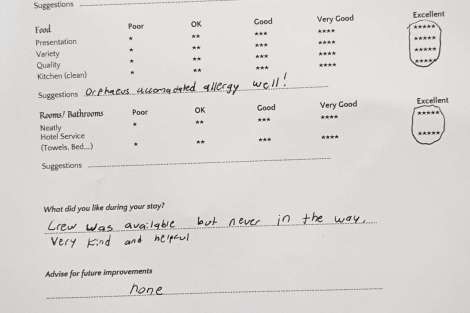 Suggestions
Food Poor OK Good Very Good Excellent
Presentation * ** *** **** *****
Variety * ** *** **** *****
Quality * ** *** **** *****
Kitchen (clean) * ** *** **** *****
Suggestions Orphaeus accomadated allergy well!
Rooms/ Bathrooms Poor OK Good Very Good Excellent
Neatly * ** *** **** *****
Hotel Service
(Towels, Bed,...) * ** *** **** *****
Suggestions
What did you like during your stay?
Crew was available but never in the way.
Very kind and helpful
Advise for future improvements
none